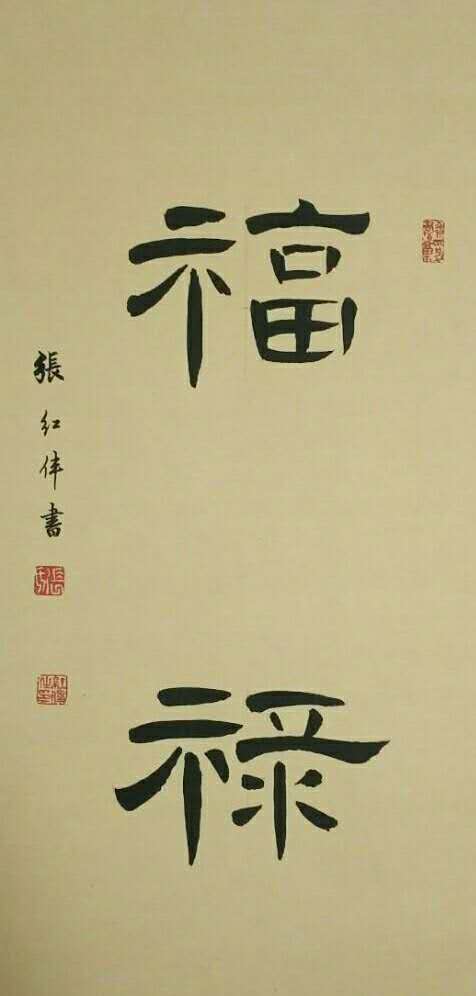 福禄
張红伟書